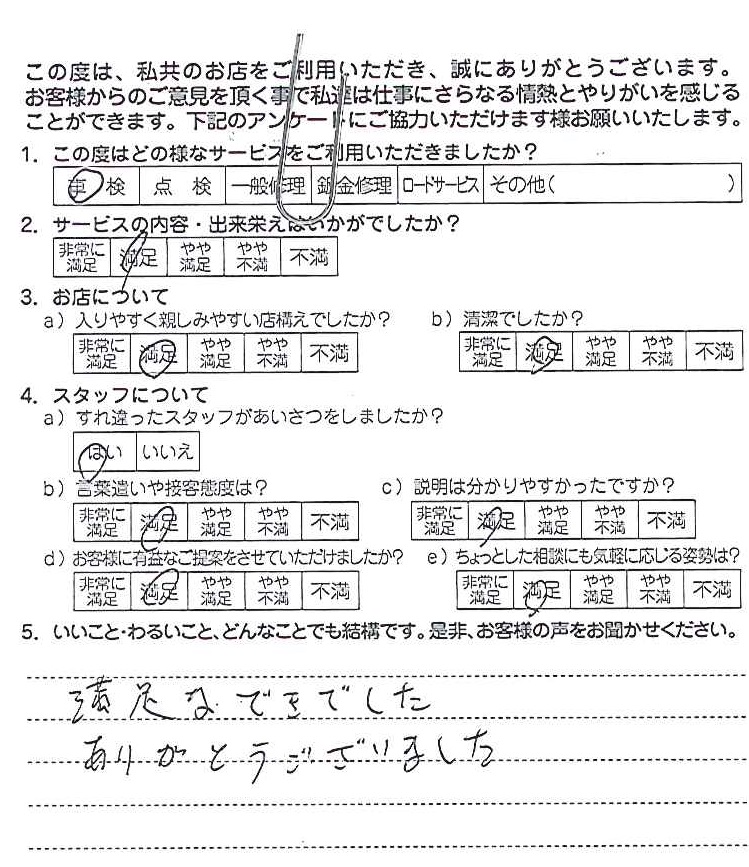 この度は、私共のお店をご利用いただき、誠にありがとうございます。
お客様からのご意見を頂く事で私達は仕事にさらなる情熱とやりがいを感じる
ことができます。下記のアンケートにご協力いただけます様お願いいたします。
1. この度はどの様なサービスをご利用いただきましたか？
車検 点検 一般修理 鈑金修理 ロードサービス その他( )
2. サービスの内容・出来栄えはいかがでしたか？
非常に満足 満足 やや満足 やや不満 不満
3. お店について
a）入りやすく親しみやすい店構えでしたか？ b）清潔でしたか？
非常に満足 満足 やや満足 やや不満 不満 非常に満足 満足 やや満足 やや不満 不満
4. スタッフについて
a）すれ違ったスタッフがあいさつをしましたか？
はい いいえ
b）言葉遣いや接客態度は？ c）説明は分かりやすかったですか？
非常に満足 満足 やや満足 やや不満 不満 非常に満足 満足 やや満足 やや不満 不満
d）お客様に有益なご提案をさせていただけましたか？ e）ちょっとした相談にも気軽に応じる姿勢は？
非常に満足 満足 やや満足 やや不満 不満 非常に満足 満足 やや満足 やや不満 不満
5. いいこと・わるいこと、どんなことでも結構です。是非、お客様の声をお聞かせください。
満足なできでした
ありがとうございました